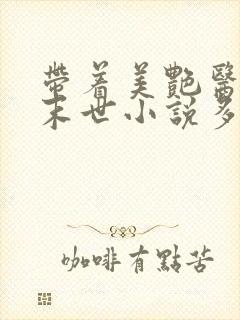 帶着美艷醫
末世小說多
咖啡有點苦